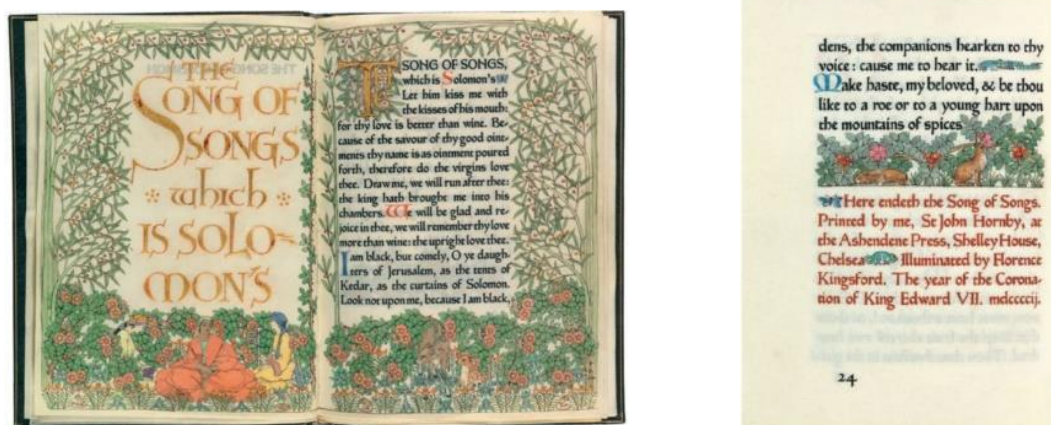 THE
SONG OF
SONGS
which
IS SOLO-
MON'S
THE SONG OF SONGS,
which is Solomon's
Let him kiss me with
the kisses of his mouth:
for thy love is better than wine. Be-
cause of the savour of thy good oint-
ments thy name is as ointment poured
forth, therefore do the virgins love
thee. Draw me, we will run after thee:
the king hath brought me into his
chambers. We will be glad and re-
joice in thee, we will remember thy love
more than wine: the upright love thee.
I am black, but comely, O ye daugh-
ters of Jerusalem, as the tents of
Kedar, as the curtains of Solomon.
Look not upon me, because I am black,
dens, the companions hearken to thy
voice: cause me to hear it.
Make haste, my beloved, & be thou
like to a roe or to a young hart upon
the mountains of spices
Here endeth the Song of Songs.
Printed by me, St John Hornby, at
the Ashendene Press, Shelley House,
Chelsea Illuminated by Florence
Kingsford. The year of the Corona-
tion of King Edward VII. mdccccij.
24